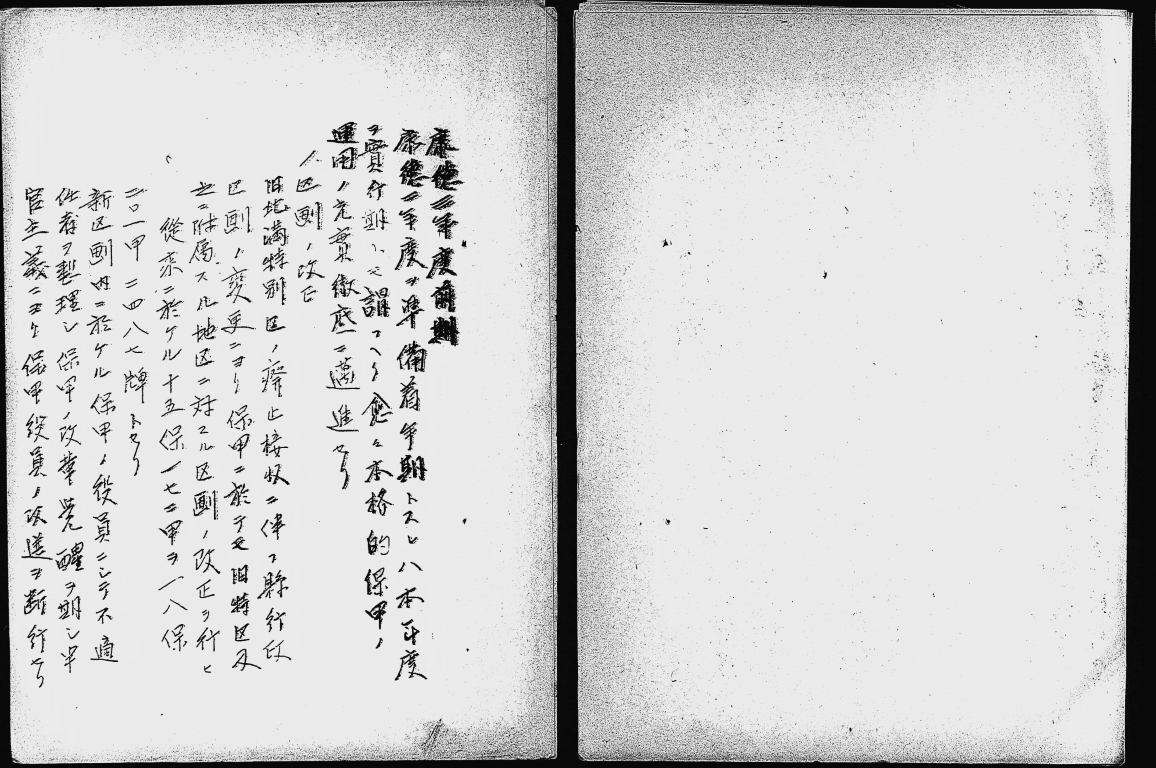 康德三年度前期
康德二年度ヲ準備着手期トスレハ本年度
ヲ實行期トモ謂フヘク愈々本格的保甲ノ
運用ノ充實徹底ニ邁進セリ
ノ区劃ノ改正
旧北満特別区ノ廃止接收ニ伴フ縣行政
区劃ノ変更ニヨリ保甲ニ於テモ旧特区及
之ニ附属スル地区ニ対スル区劃ノ改正ヲ行ヒ
従来ニ於ケル十五保一七二甲ヲ一八保
二〇一甲二四八七牌トセリ
新区劃内ニ於ケル保甲ノ役員ニシテ不適
任者ヲ整理シ保甲ノ改革覚醒ヲ期シ半
官主義ニヨリ保甲役員ノ改選ヲ断行セリ